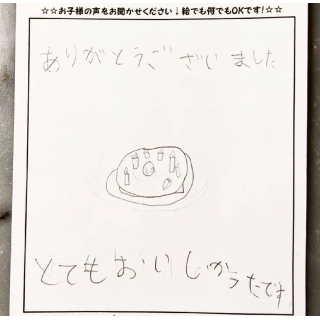 ☆☆お子様の声をお聞かせください↓絵でも何でもOKです!☆☆
ありがとうございました
とてもおいしかったです